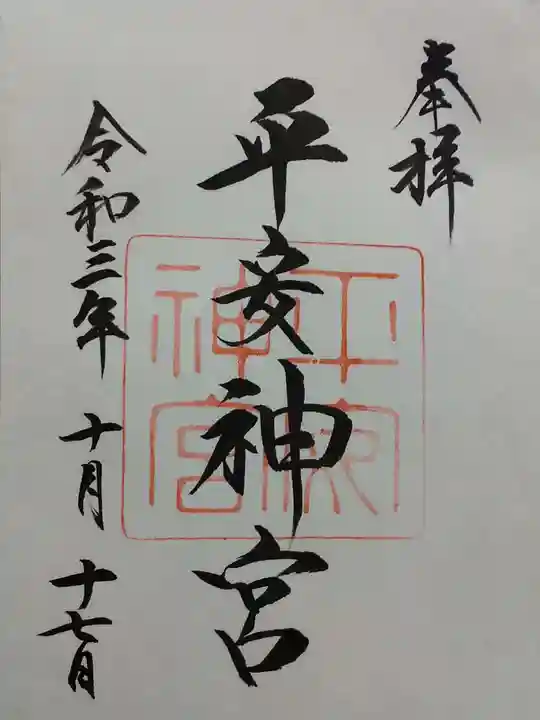 奉拝
平安神宮
平安
神宮
令和三年 十月 十七日